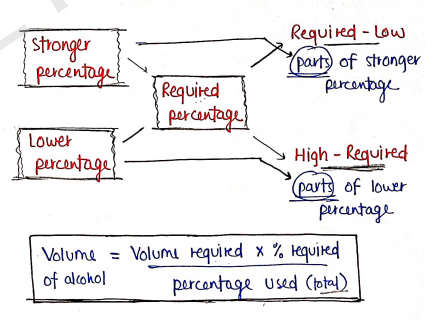 Stronger
percentage
Required
percentage
Lower
percentage
Required - Low
parts of stronger
percentage
High - Required
parts of lower
percentage
Volume of alcohol = Volume required x % required
percentage used (total)